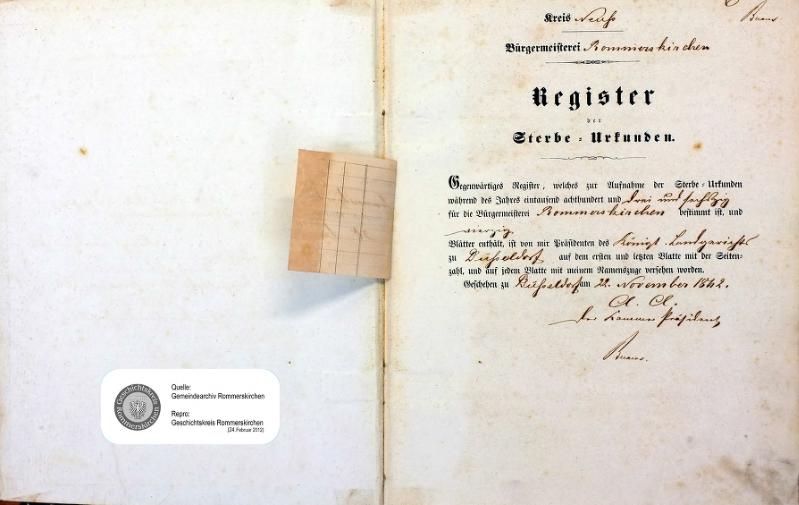 Quelle:
Gemeindearchiv Rommerskirchen
Repro:
Geschichtskreis Rommerskirchen
(24.Februar 2012)
Geschichtskreis
Rommerskirchen
Kreis Neuß
Bürgermeisterei Rommerskirchen
Register
der
Sterbe-Urkunden.
Gegenwärtiges Register, welches zur Aufnahme der Sterbe-Urkunden
während des Jahres eintausend achthundert und drei und sechszig
für die Bürgermeisterei Rommerskirchen bestimmt ist, und
vierzig
Blätter enthält, ist von mir Präsidenten des Königl. Landgerichts
zu Düsseldorf auf dem ersten und letzten Blatte mit der Seiten-
zahl, und auf jedem Blatte mit meinem Namenszuge versehen worden.
Geschehen zu Düsseldorf am 22. November 1862.
Der Kammer Präsident